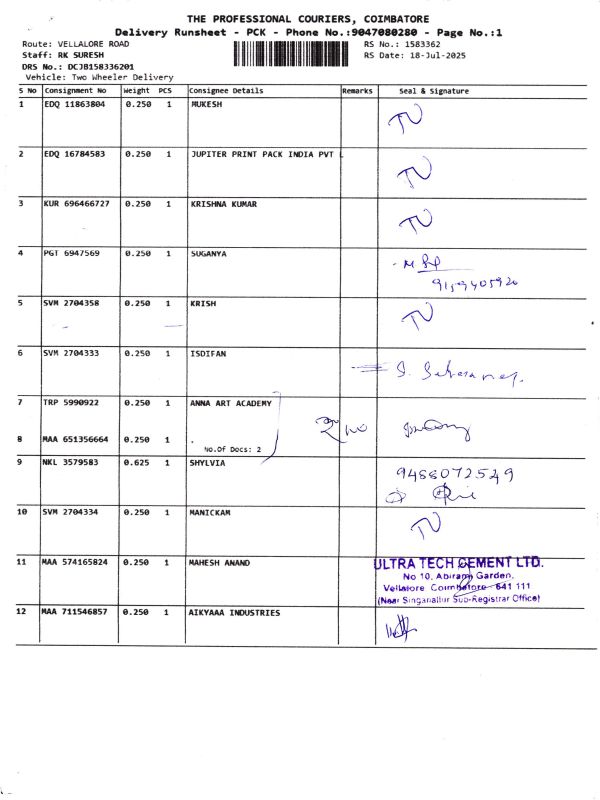 THE PROFESSIONAL COURIERS, COIMBATORE
Delivery Runsheet - PCK - Phone No.:9047080280 - Page No.:1
Route: VELLALORE ROAD RS No.: 1583362
Staff: RK SURESH RS Date: 18-Jul-2025
DRS No.: DCJB158336201
Vehicle: Two Wheeler Delivery
S No Consignment No Weight PCS Consignee Details Remarks Seal & Signature
1 EDQ 11863804 0.250 1 MUKESH
2 EDQ 16784583 0.250 1 JUPITER PRINT PACK INDIA PVT L
3 KUR 696466727 0.250 1 KRISHNA KUMAR
4 PGT 6947569 0.250 1 SUGANYA
5 SVM 2704358 0.250 1 KRISH
6 SVM 2704333 0.250 1 ISDIFAN
7 TRP 5990922 0.250 1 ANNA ART ACADEMY
8 MAA 651356664 0.250 1 .
No.Of Docs: 2
9 NKL 3579583 0.625 1 SHYLVIA 9486072549
10 SVM 2704334 0.250 1 MANICKAM
11 MAA 574165824 0.250 1 MAHESH ANAND ULTRA TECH CEMENT LTD.
No 10, Abirami Garden,
Vellalore Coimbatore - 641 111
(Near Singanallur Sub-Registrar Office)
12 MAA 711546857 0.250 1 AIKYAAA INDUSTRIES